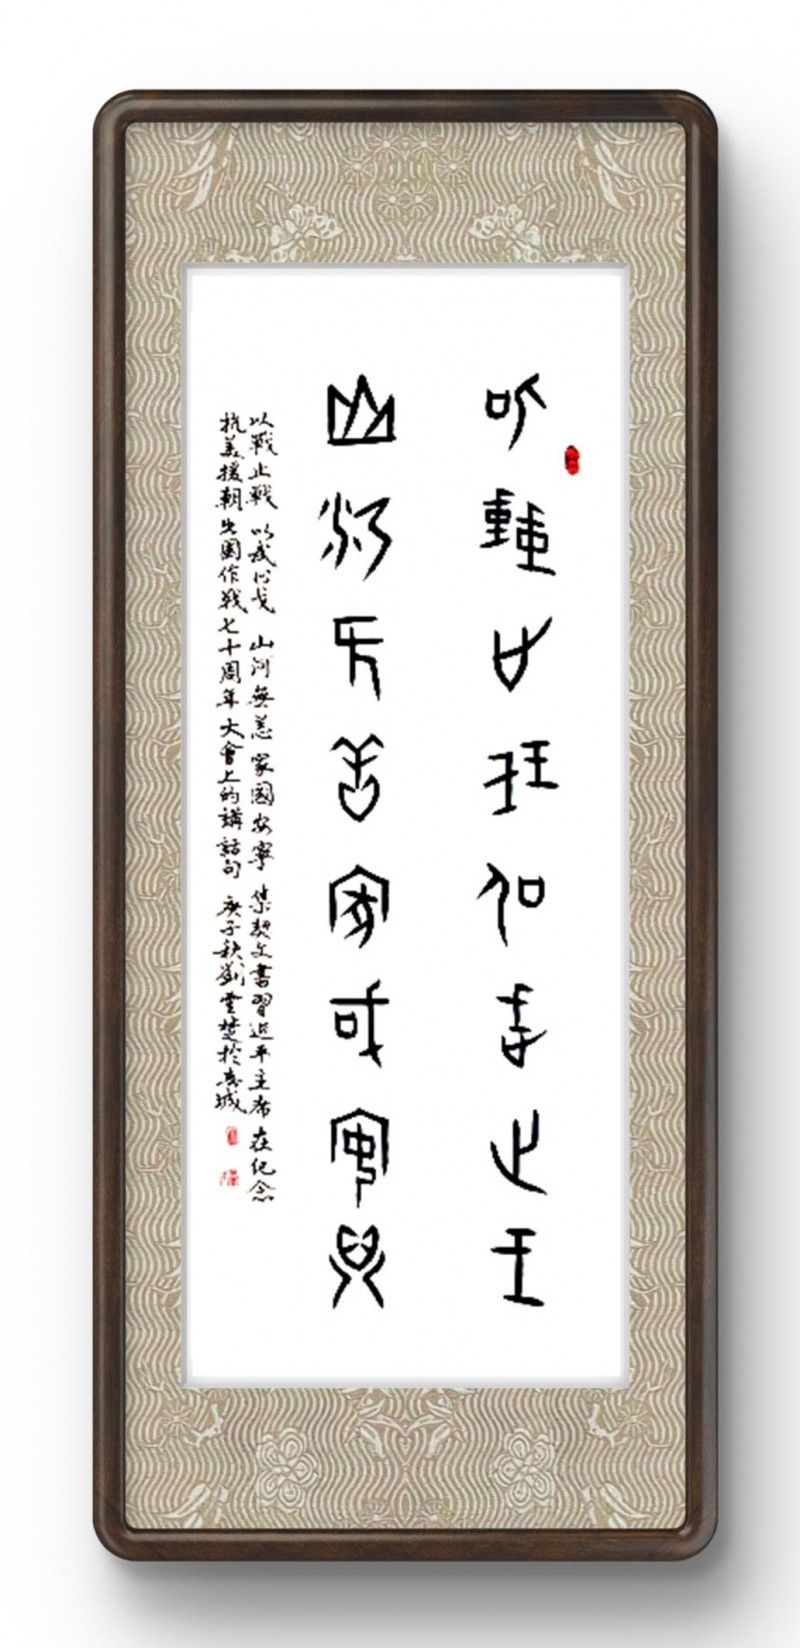 以戰止戰以武止戈
山河無恙家國安寧
以戰止戰 以武止戈 山河無恙 家國安寧 集契文書習近平主席在紀念
抗美援朝出國作戰七十周年大會上的講話句 庚子秋劉雲楚於春城